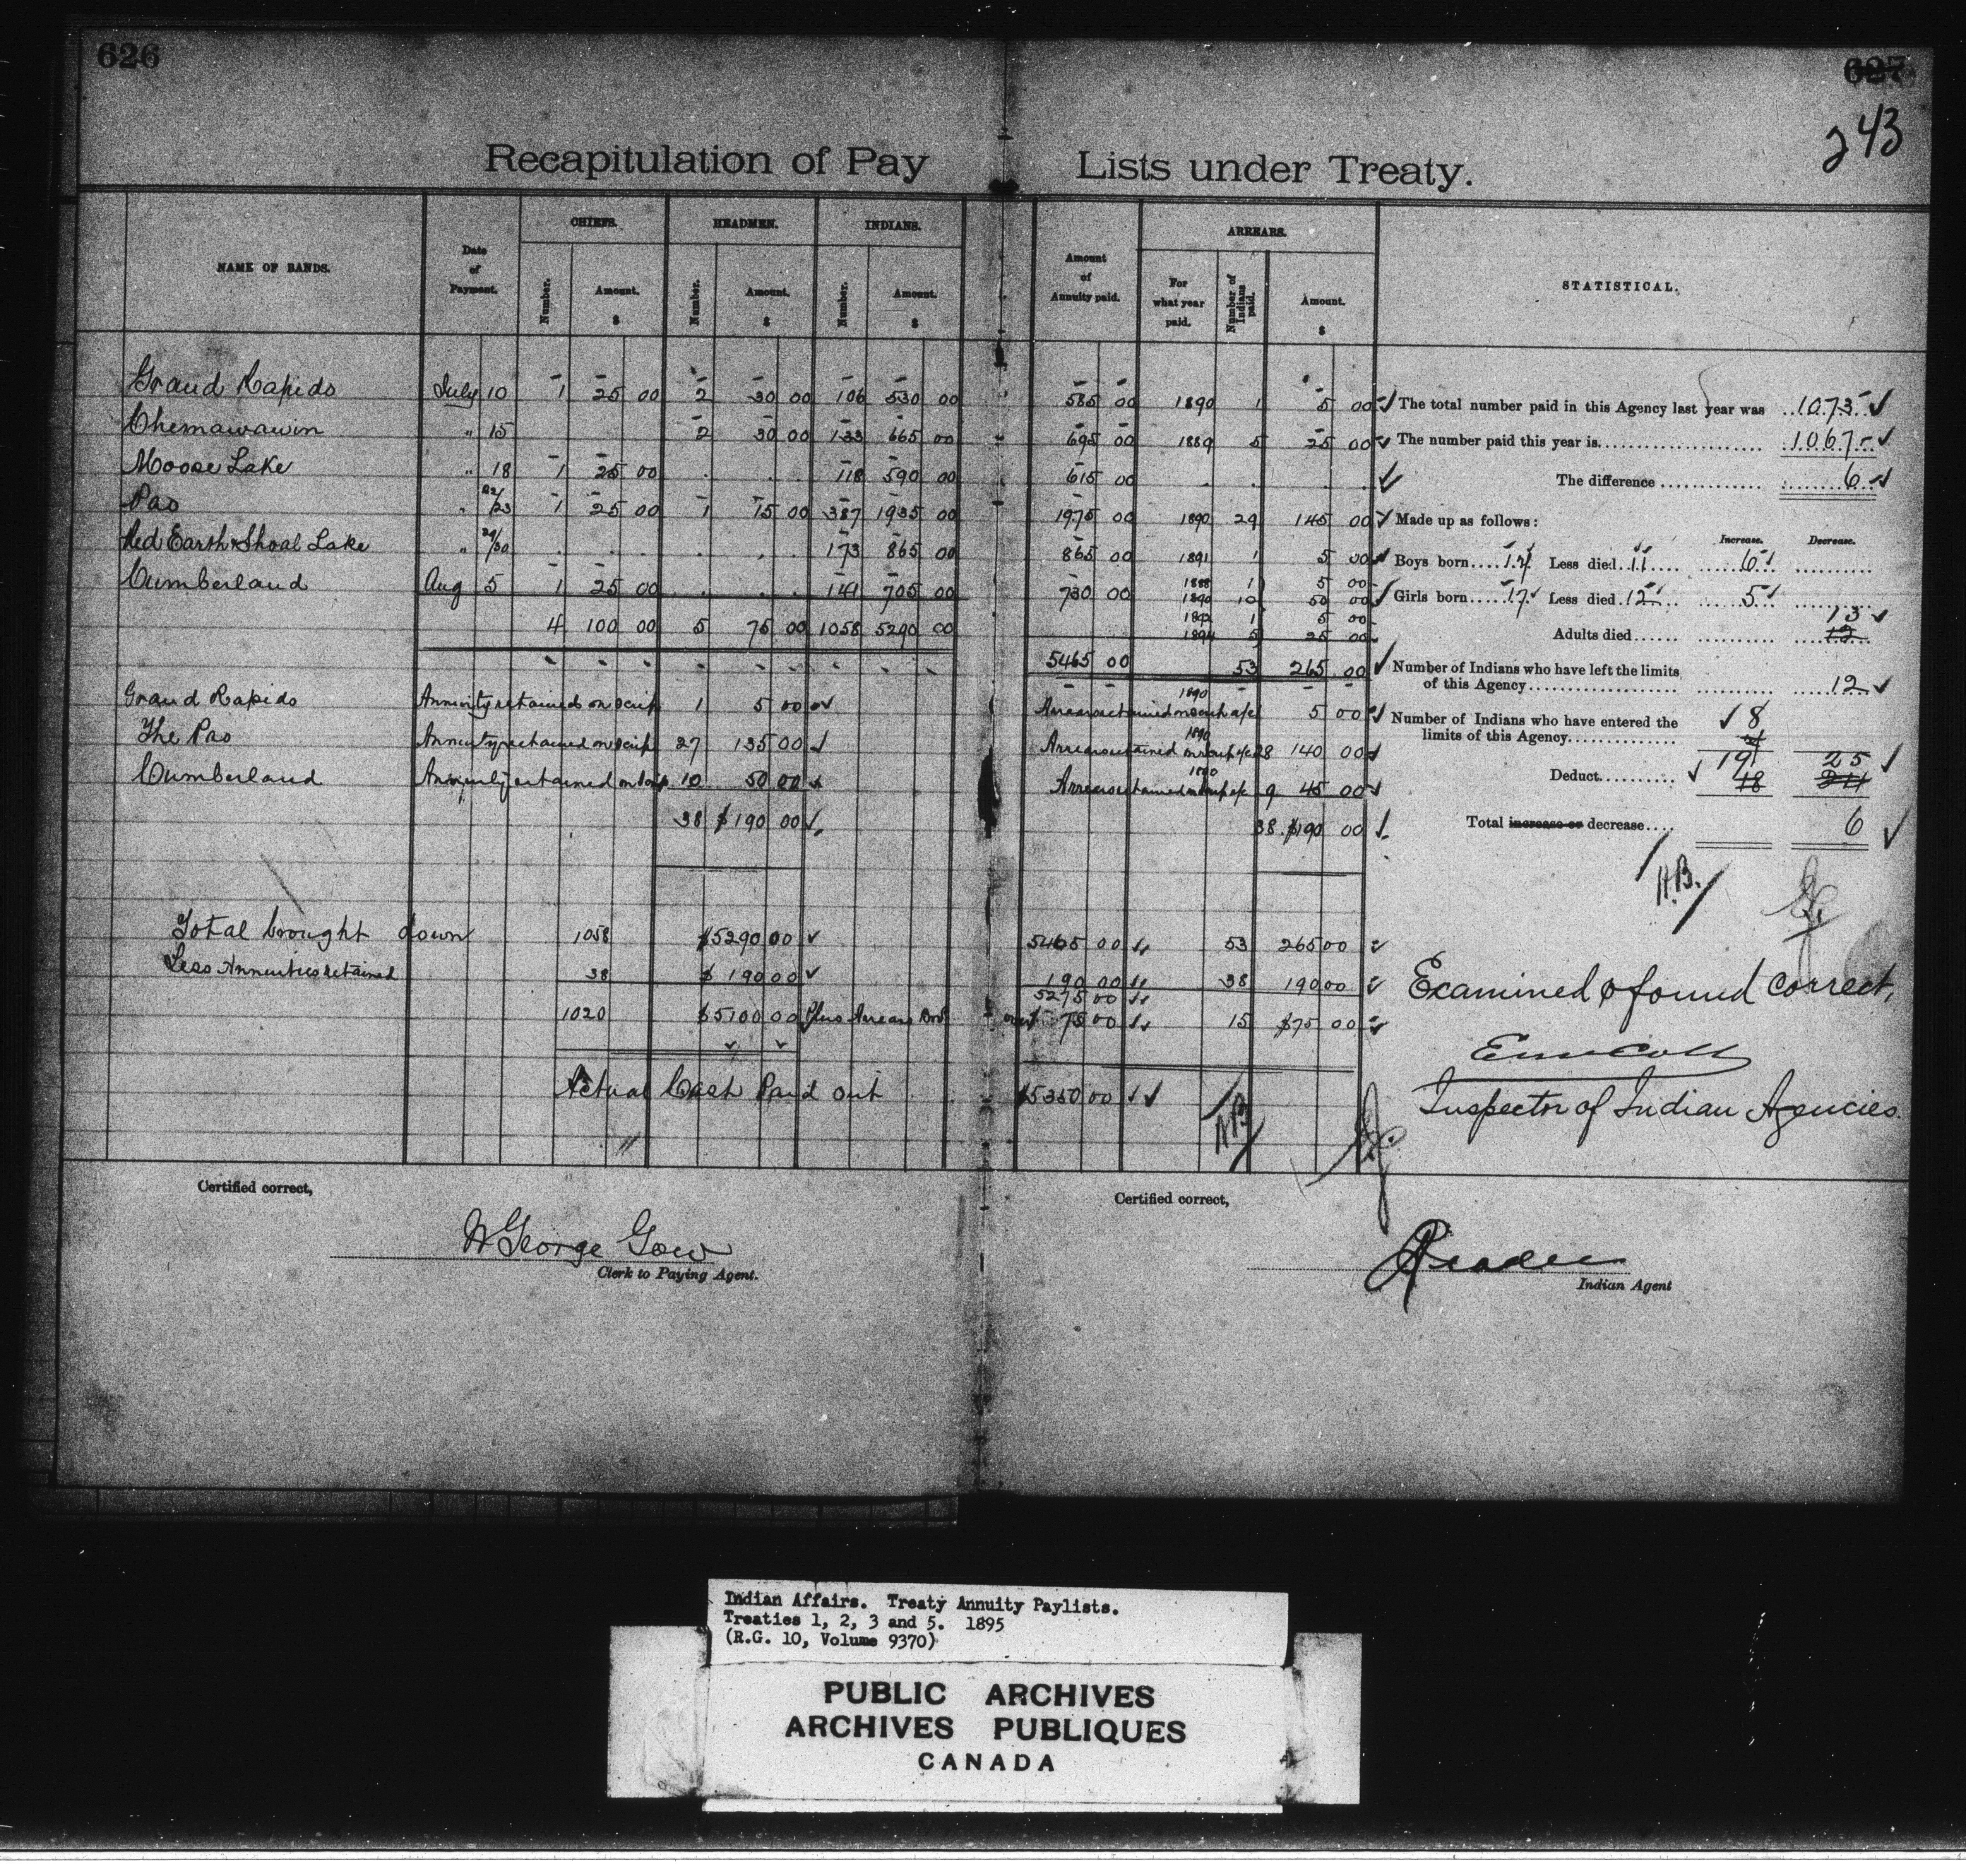 626
627
243
Recapitulation of Pay Lists under Treaty.
NAME OF BANDS. Date of Payment. CHIEFS. HEADMEN. INDIANS. Amount of Annuity paid. ARREARS. STATISTICAL.
Number. Amount. $ Number. Amount. $ Number. Amount. $ For what year paid. Number of Indians paid. Amount. $
Grand Rapids July 10 1 25 00 2 30 00 106 530 00 585 00 1890 1 5 00
Chemawawin " 15 2 30 00 133 665 00 695 00 1889 5 25 00
Moose Lake " 18 1 25 00 118 590 00 615 00
Pas " 22/23 1 25 00 1 15 00 387 1935 00 1975 00 1890 29 145 00
Red Earth & Shoal Lake " 29/30 173 865 00 865 00 1891 1 5 00
Cumberland Aug 5 1 25 00 141 705 00 730 00 1888 1 5 00
1890 10 50 00
1892 1 5 00
4 100 00 5 75 00 1058 5290 00 1894 5 25 00
5465 00 53 265 00
Grand Rapids Annuity retained on scrip 1 5 00 Arrears retained on scrip a/c 1890 5 00
The Pas Annuity retained on scrip 27 135 00 Arrears retained on scrip a/c 1890 28 140 00
Cumberland Annuity retained on scrip 10 50 00 Arrears retained on scrip a/c 1890 9 45 00
38 $190 00 38 $190 00
Total brought down 1058 $5290 00 5465 00 53 265 00
Less Annuities retained 38 $190 00 190 00 38 190 00
5275 00
1020 $5100 00 Plus Arrears Brot over 75 00 15 $75 00
Actual Cash Paid out $5350 00
The total number paid in this Agency last year was 1073
The number paid this year is 1067
The difference 6
Made up as follows:
Increase. Decrease.
Boys born 17 Less died 11 6
Girls born 17 Less died 12 5
13
Adults died 12
Number of Indians who have left the limits
of this Agency 12
Number of Indians who have entered the 8
limits of this Agency
19 25
Deduct 18 24
Total increase or decrease 6
H.B.
Examined & found correct,
Inspector of Indian Agencies.
H.B.
Certified correct,
W George Gow
Clerk to Paying Agent.
Certified correct,
Reader
Indian Agent
Indian Affairs. Treaty Annuity Paylists.
Treaties 1, 2, 3 and 5. 1895
(R.G. 10, Volume 9370)
PUBLIC ARCHIVES
ARCHIVES PUBLIQUES
CANADA